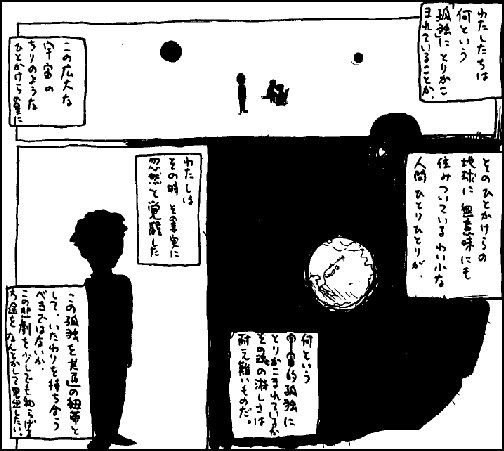 わたしたちは
何という
孤独に とりかこ
まれていることか。
この広大な
宇宙の
ちりのような
ひとかけら
そのひとかけらの
地球に 無意味にも
住みついている わい小な
人間 ひとりひとりが、
何という
宇宙的孤独に
とりかこまれているか
その魂の淋しさは
耐え難いものだ。
わたしは
その時 その事実に
忽然と覚醒した
この孤独を共通の紐帯と
して、いたわりを持ち合う
べきではないか
この悲劇を少しでも和らげる
方途を なんとかして見出したい。